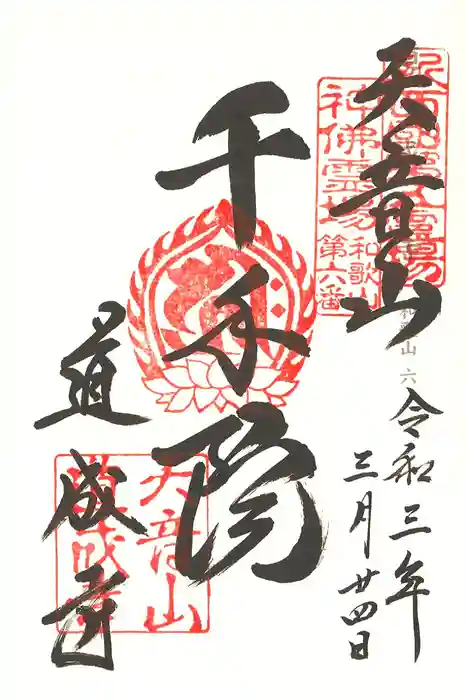 天音山
千手院
道成寺
令和三年
三月廿四日
神佛霊場
和歌山
第六番
和歌山 六
天音山
道成寺